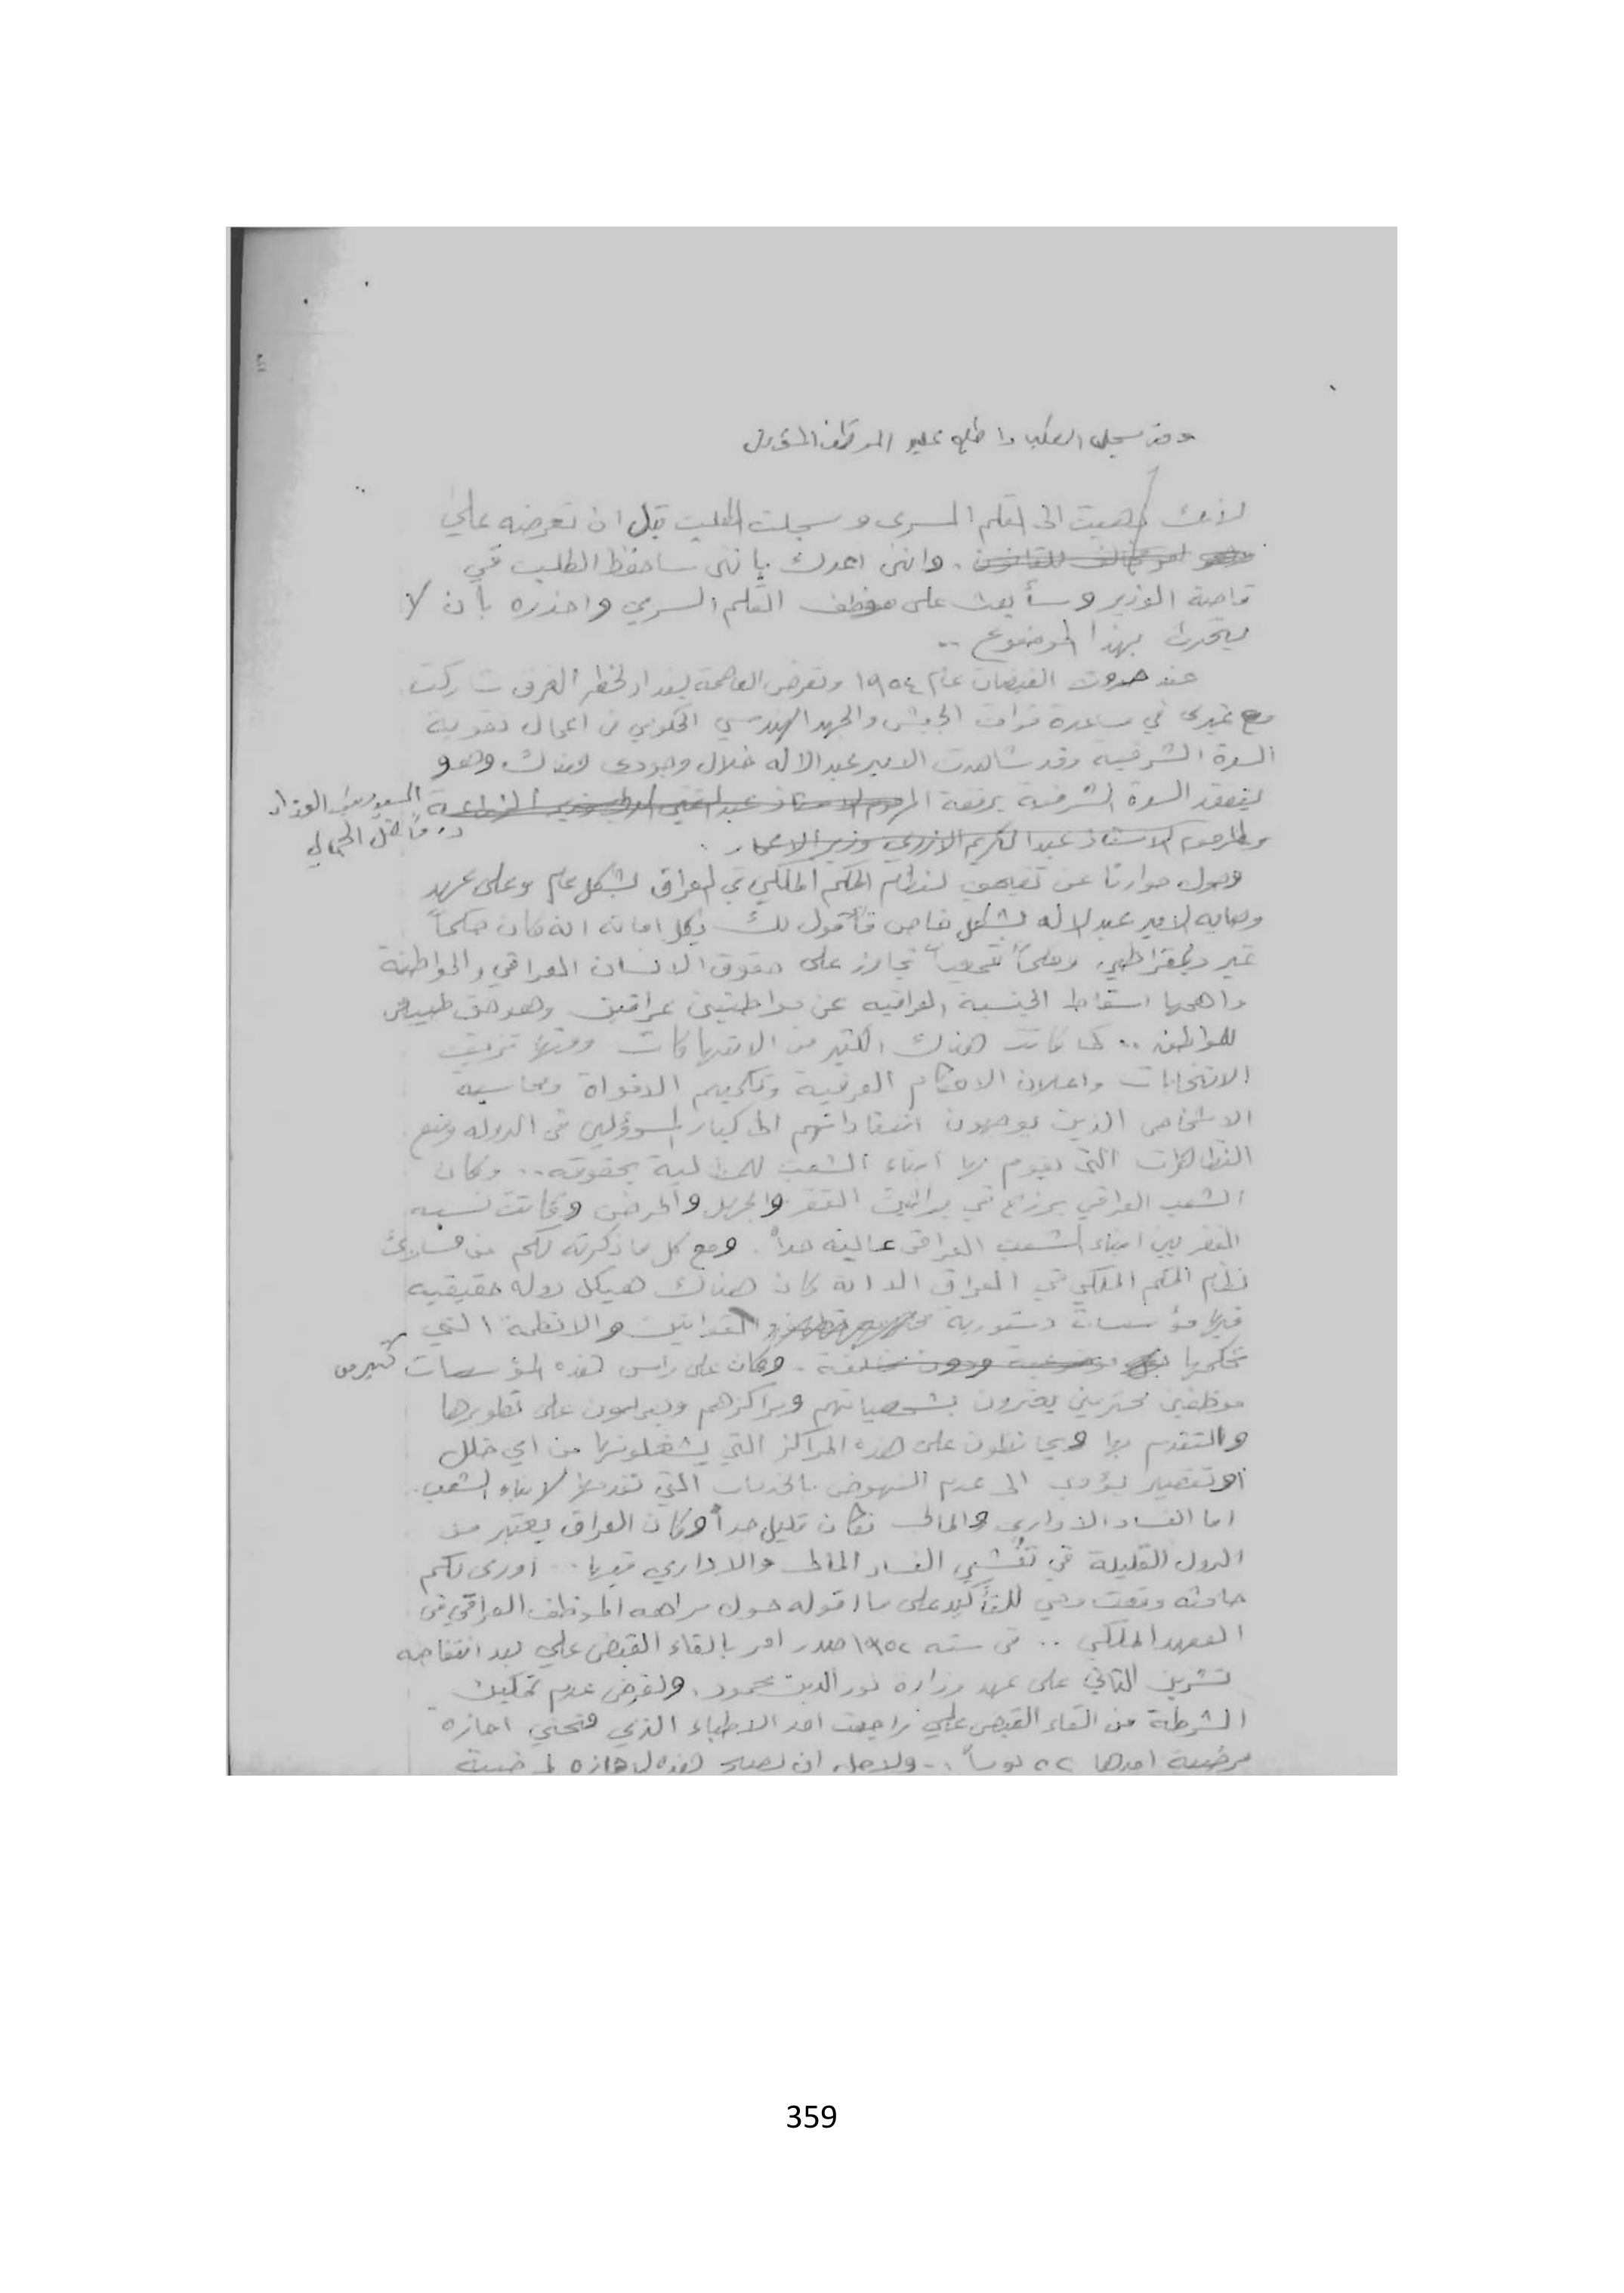 وقد سجل الطلب واطلع عليه الموظف المسؤول
لأنك ذهبت الى القلم السري وسجلت الطلب قبل ان تعرضه علي
وهو امر مخالف للقانون . وانني اعدك بانني ساحفظ الطلب في
قاصة الوزير وسأبعث على موظف القلم السري واحذره بأن لا
يتحدث بهذا الموضوع ..
عند حدوث الفيضان عام ١٩٥٤ وتعرض العاصمة بغداد لخطر الغرق شاركت
مع غيري في مساعدة قوات الجيش والجهد الهندسي الحكومي من اعمال تقوية
السدة الشرقية وقد شاهدت الامير عبد الاله خلال وجودي هناك وهو
يتفقد السدة الشرقية برفقة المرحوم الاستاذ عبد الغني وزير الزراعة السيد رئيس الوزراء
د. فاضل الجمالي
والمرحوم الاستاذ عبد الكريم الازري وزير الاعمار .
وحول حوارنا عن تقييمي لنظام الحكم الملكي في العراق بشكل عام وعلى عهد
وصاية الامير عبد الاله بشكل خاص فأقول لك بكل امانة انه كان حكماً
غير ديمقراطي وحكماً تجاوز على حقوق الانسان العراقي والمواطنة
واهمها اسقاط الجنسية العراقية عن مواطنين عراقيين وهو حق طبيعي
للمواطن .. كما كانت هناك الكثير من الانتهاكات ومنها تزييف
الانتخابات واعلان الاحكام العرفية وتكميم الافواة ومحاسبة
الاشخاص الذين يوجهون انتقاداتهم الى كبار المسؤولين في الدولة ومنع
التظاهرات التي يقوم بها ابناء الشعب للمطالبة بحقوقه .. وكان
الشعب العراقي يرزح في براثن الفقر والجهل والمرض وكانت نسبة
الفقر بين ابناء الشعب العراقي عالية جداً . ومع كل ما ذكرته لكم من مساوئ
نظام الحكم الملكي في العراق الا انه كان هناك هيكل دولة حقيقية
فيها مؤسسات دستورية القوانين والانظمة التي
تحكمها ودون . وكان على راس هذه المؤسسات كثير من
موظفين محترمين يعتزون بشخصياتهم ومراكزهم ويعملون على تطويرها
والتقدم بها ويحافظون على هذه المراكز التي يشغلونها من اي خلل
او تقصير يؤدي الى عدم النهوض بالخدمات التي تقدمها لابناء الشعب .
اما الفساد الاداري والمالي فكان قليل جداً وكان العراق يعتبر من
الدول القليلة في تفشي الفساد المالي والاداري فيها .. اروي لكم
حادثة وقعت معي للتأكيد على ما اقوله حول نزاهة الموظف العراقي في
العهد الملكي .. في سنه ١٩٥٢ صدر امر بالقاء القبض علي بعد انتفاضة
تشرين الثاني على عهد وزارة نور الدين محمود . ولغرض عدم تمكين
الشرطة من القاء القبض علي راجعت احد الاطباء الذي منحني اجازة
مرضية امدها ٢٢ يوماً .. ولاجل ان تصبح هذه الاجازة
359